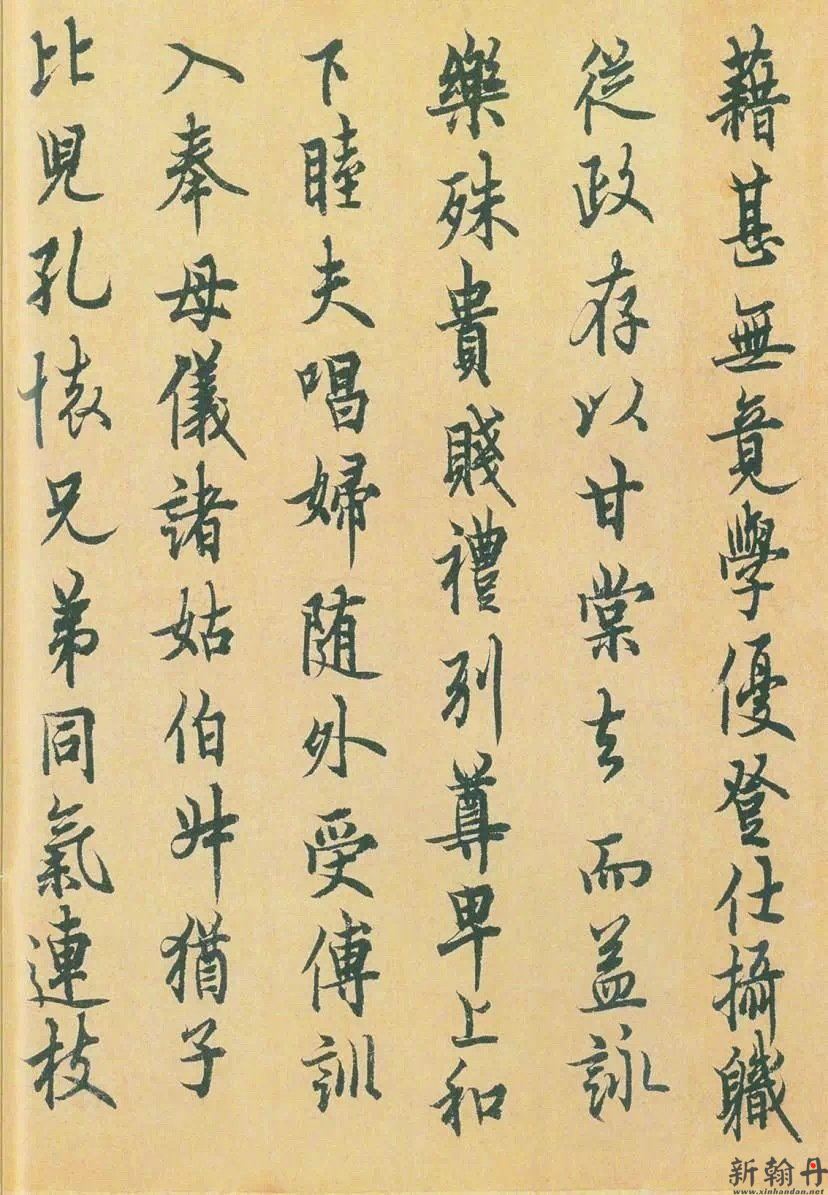 藉甚無竟學優登仕攝職
從政存以甘棠去而益詠
樂殊貴賤禮別尊卑上和
下睦夫唱婦随外受傅訓
入奉母儀諸姑伯叔猶子
比兒孔懐兄弟同氣連枝
新翰丹
www.xinhandan.net